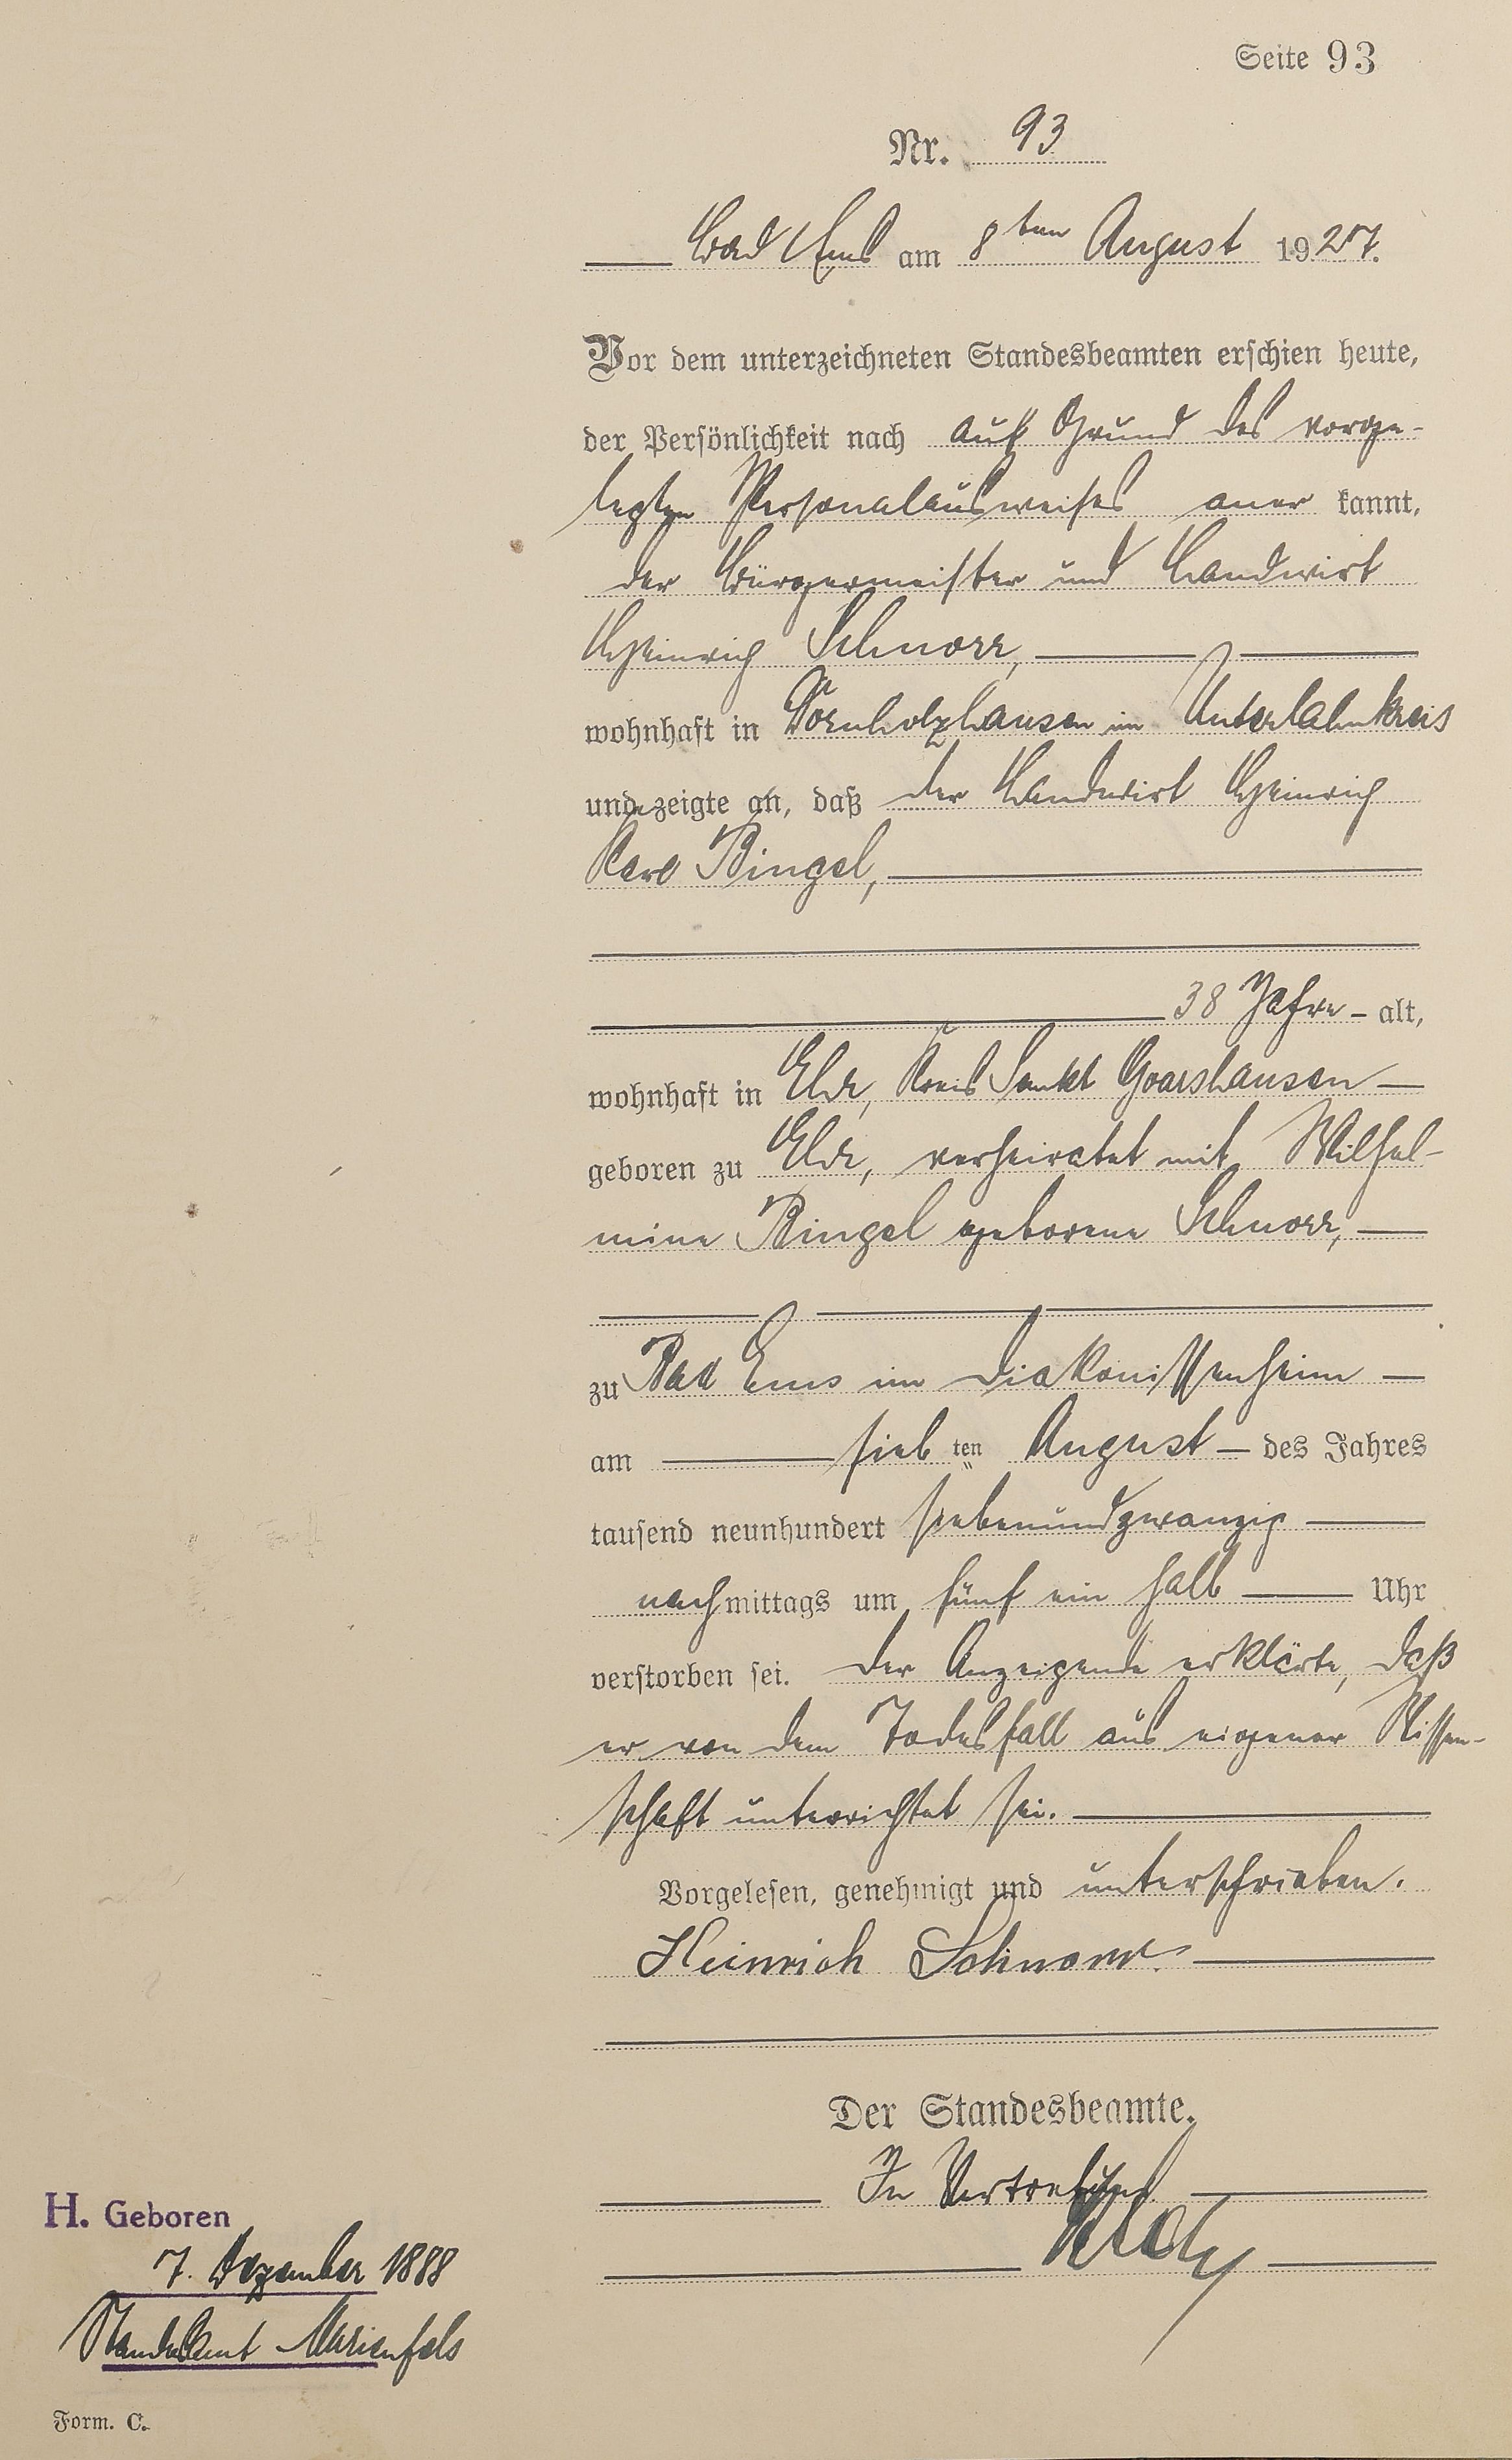 Seite 93
Nr. 93
Bad Ems am 8ten August 1927.
Vor dem unterzeichneten Standesbeamten erschien heute,
der Persönlichkeit nach auf Grund des vorge-
legten Personalausweises aner kannt,
der Bürgermeister und Landwirt
Heinrich Schnorr,
wohnhaft in Dörnholzhausen im Unterlahnkreis
und zeigte an, daß der Landwirt Heinrich
Karl Bingel,
38 Jahre alt,
wohnhaft in Ehr, Kreis Sankt Goarshausen
geboren zu Ehr, verheiratet mit Wilhel-
mine Bingel geborene Schnorr,
zu Bad Ems im Diakonissenheim
am sieb ten August des Jahres
tausend neunhundert siebenundzwanzig
nachmittags um fünf ein halb Uhr
verstorben sei. Der Anzeigende erklärte, daß
er von dem Todesfall aus eigener Wissen-
schaft unterrichtet sei.
Vorgelesen, genehmigt und unterschrieben.
Heinrich Schnorr.
Der Standesbeamte.
In Vertretung
H. Geboren
7. Dezember 1888
Standesamt Marienfels
Form. C.